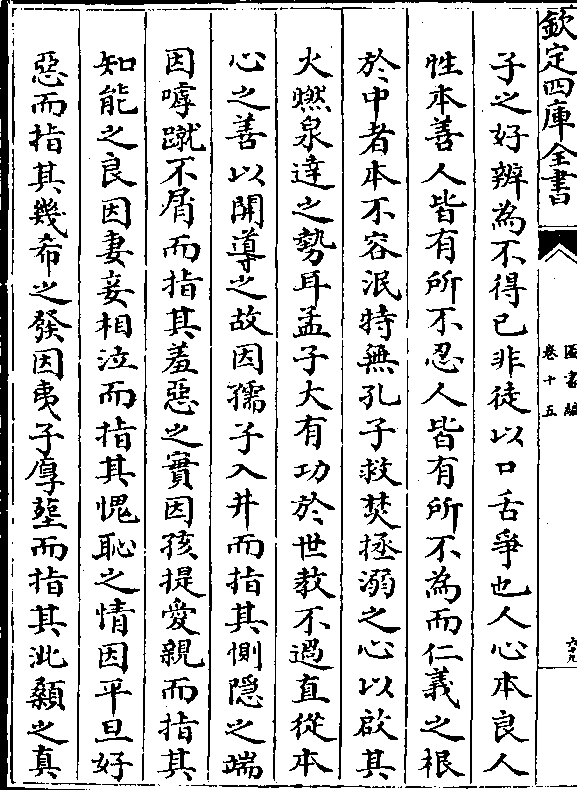 欽定四庫全書
圖書編
卷十五
六九
子之好辨為不得已非徒以口舌爭也人心本良人
性本善人皆有所不忍人皆有所不為而仁義之根
於中者本不容泯特無孔子救焚拯溺之心以啟其
火燃泉達之勢耳孟子大有功於世教不過直從本
心之善以開導之故因孺子入井而指其惻隱之端
因嘑蹴不屑而指其羞惡之實因孩提愛親而指其
知能之良因妻妾相泣而指其愧恥之情因平旦好
惡而指其幾希之發因夷子厚塟而指其泚顙之真